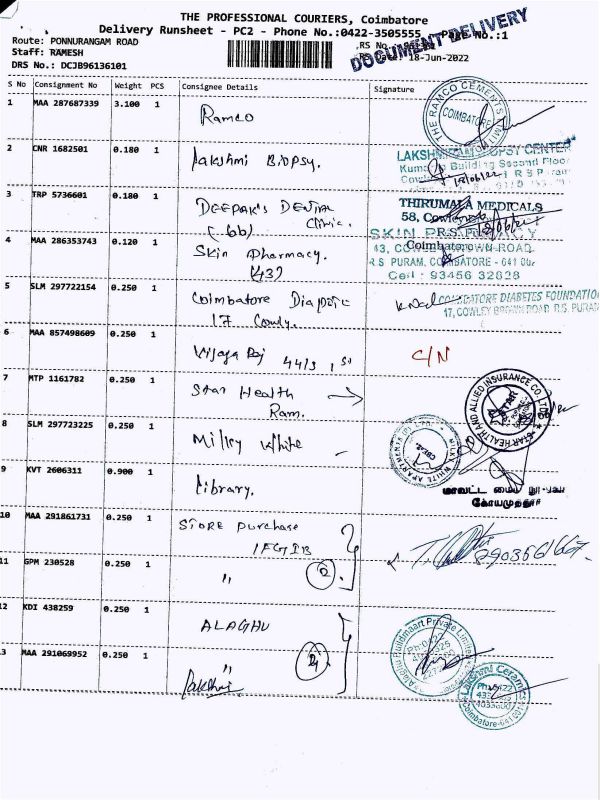 THE PROFESSIONAL COURIERS, Coimbatore
Delivery Runsheet - PC2 - Phone No.:0422-3505555 Page No.:1
DOCUMENT DELIVERY
Route: PONNURANGAM ROAD
Staff: RAMESH
DRS No.: DCJB96136101
18-Jun-2022
S No Consignment No Weight PCS Consignee Details Signature
1 MAA 287687339 3.100 1 Ramco
THE RAMCO CEMENTS
COIMBATORE
2 CNR 1682501 0.180 1 Lakshmi Biopsy.
BIOPSY CENTER
Building Second Floor
3 TRP 5736601 0.180 1 DEEPAK'S DENTAL
(66) Clinic.
THIRUMALA MEDICALS
4 MAA 286353743 0.120 1 Skin Pharmacy.
(43)
43, COWLEY BROWN ROAD
R.S PURAM, COIMBATORE - 641 002
Cell : 93456 32828
5 SLM 297722154 0.250 1 Coimbatore Diabetic
17 Cowly.
COIMBATORE DIABETES FOUNDATION
17, COWLEY BROWN ROAD R.S. PURAM
6 MAA 857498609 0.250 1 Vijaya Raj 44/3 1 St
C/N
7 MTP 1161782 0.250 1 Star Health
Ram.
STAR HEALTH AND ALLIED INSURANCE CO. LTD
8 SLM 297723225 0.250 1 Milky White
MILKY WHITE APARTMENTS
9 KVT 2606311 0.900 1 Library.
மாவட்ட மைய நூலகம்
கோயமுத்தூர்
10 MAA 291861731 0.250 1 STORE Purchase
IFGTB
11 GPM 230528 0.250 1 "
2
12 KDI 438259 0.250 1 ALAGHU
13 MAA 291069952 0.250 1 "
Lakshmi
Alaghu Buildmaart Private Limited
Lakshmi Ceramics
Ph:0422
Coimbatore-641 001